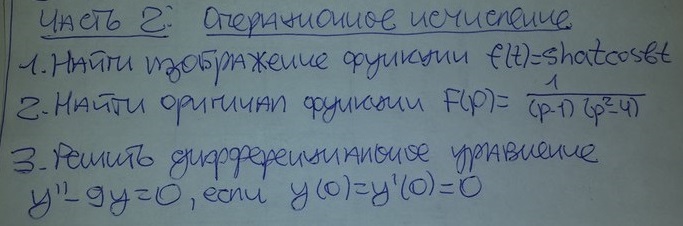 Часть 2: Операционное исчисление
1. Найти изображение функции f(t)=shatcosbt
2. Найти оригинал функции F(p)= 1/((p-1)(p²-4))
3. Решить дифференциальное уравнение
y''-9y=0, если y(0)=y'(0)=0